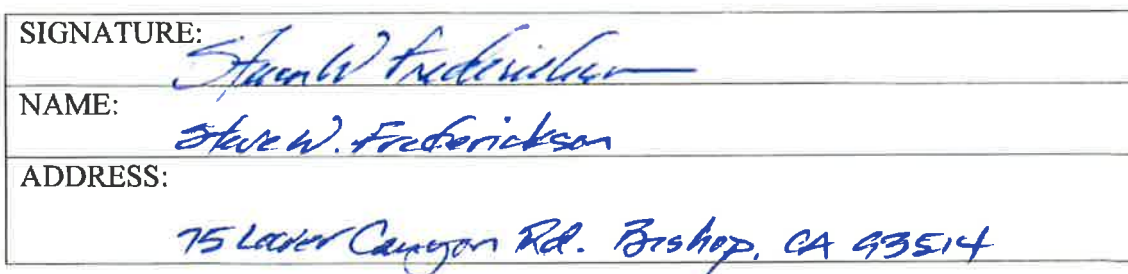 SIGNATURE:
Steven W Frederickson
NAME:
Steve W. Frederickson
ADDRESS:
75 Lower Canyon Rd. Bishop, CA 93514